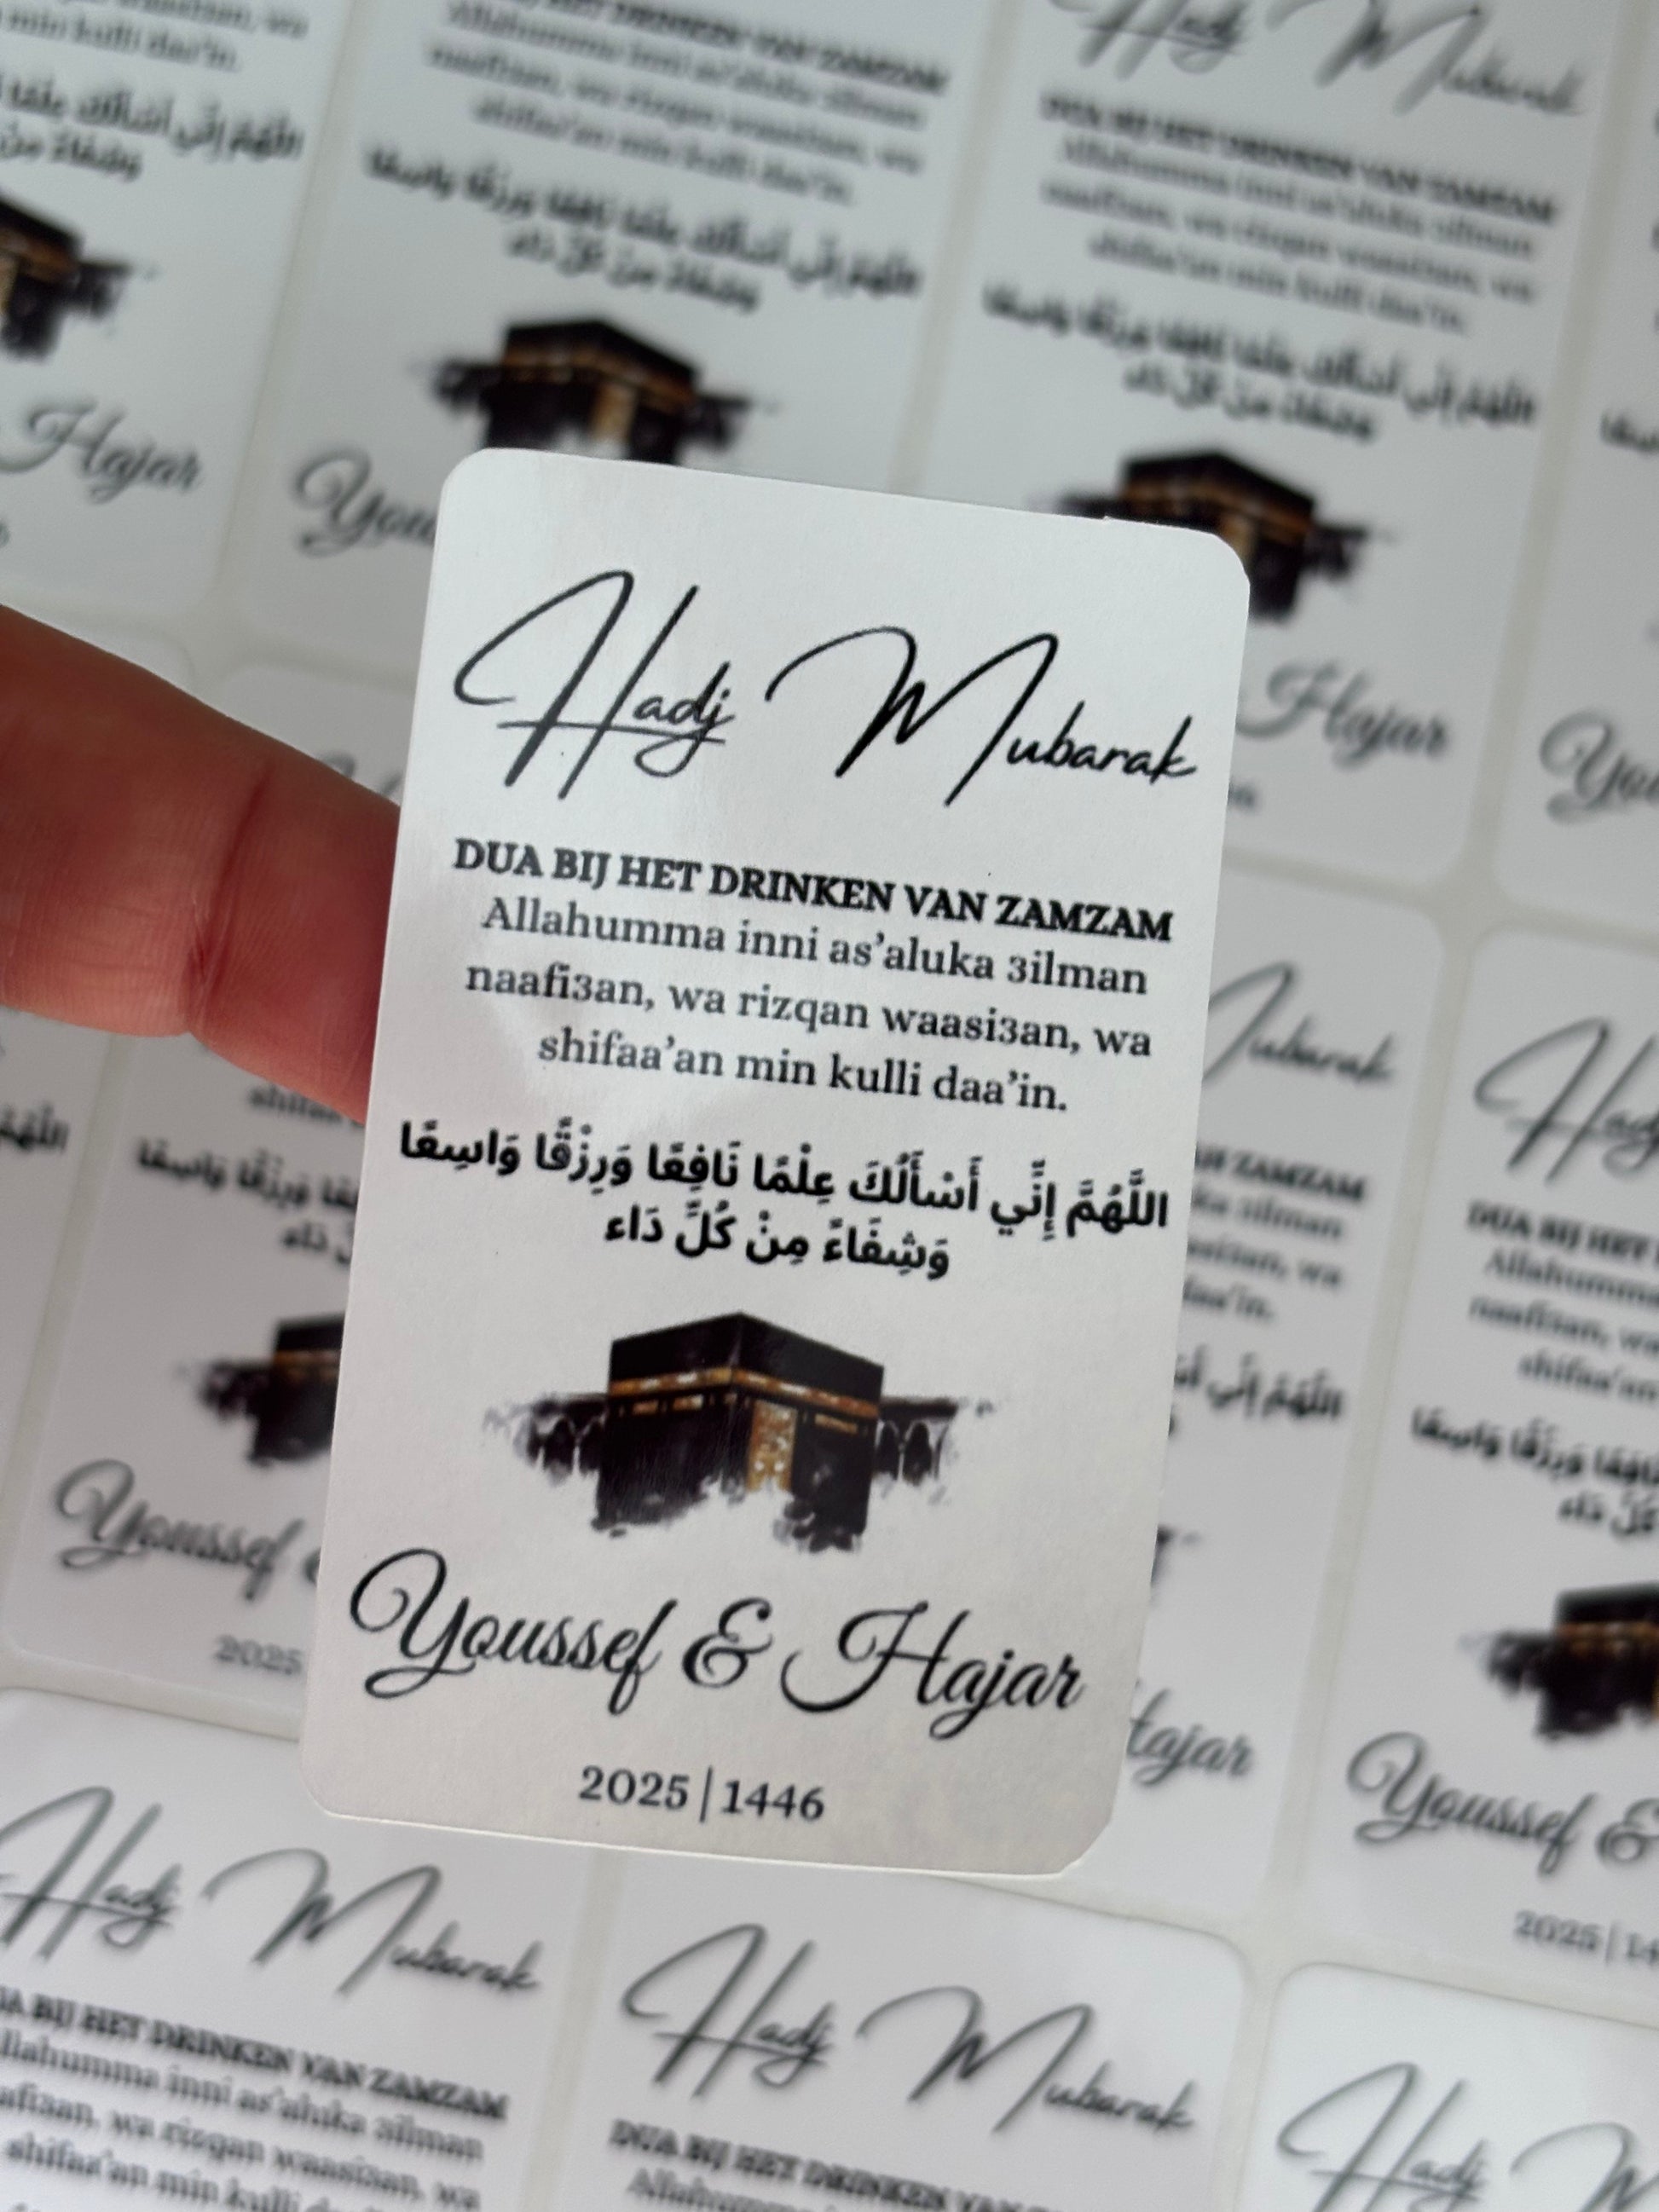 Hadj Mubarak
DUA BIJ HET DRINKEN VAN ZAMZAM
Allahumma inni as’aluka 3ilman
naafi3an, wa rizqan waasi3an, wa
shifaa’an min kulli daa’in.
اللَّهُمَّ إِنَّي أَسْأَلُكَ عِلْمًا نَافِعًا وَرِزْقًا وَاسِعًا
وَشِفَاءً مِنْ كُلِّ دَاء
Youssef & Hajar
2025 | 1446